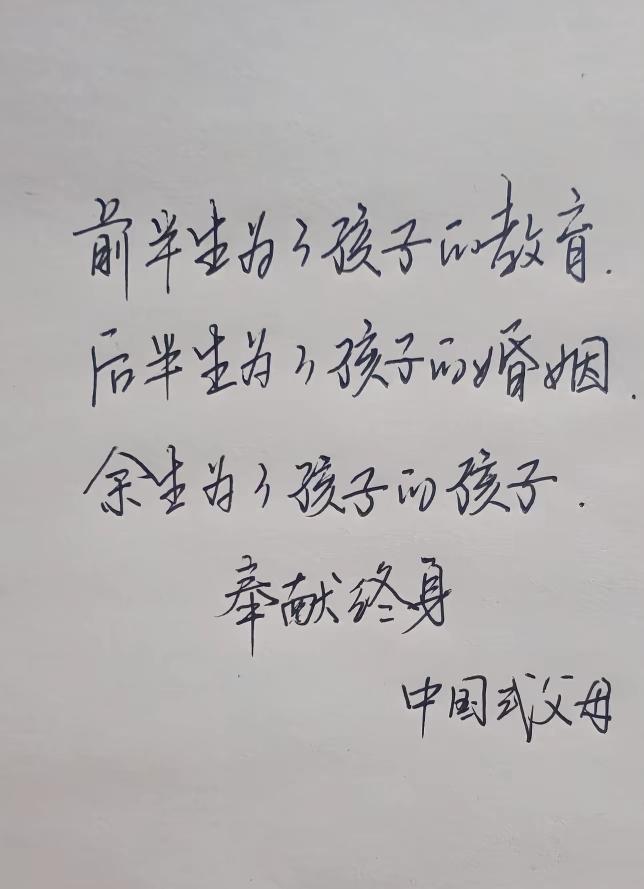 前半生为了孩子的教育.
后半生为了孩子的婚姻.
余生为了孩子的孩子.
奉献终身
中国式父母